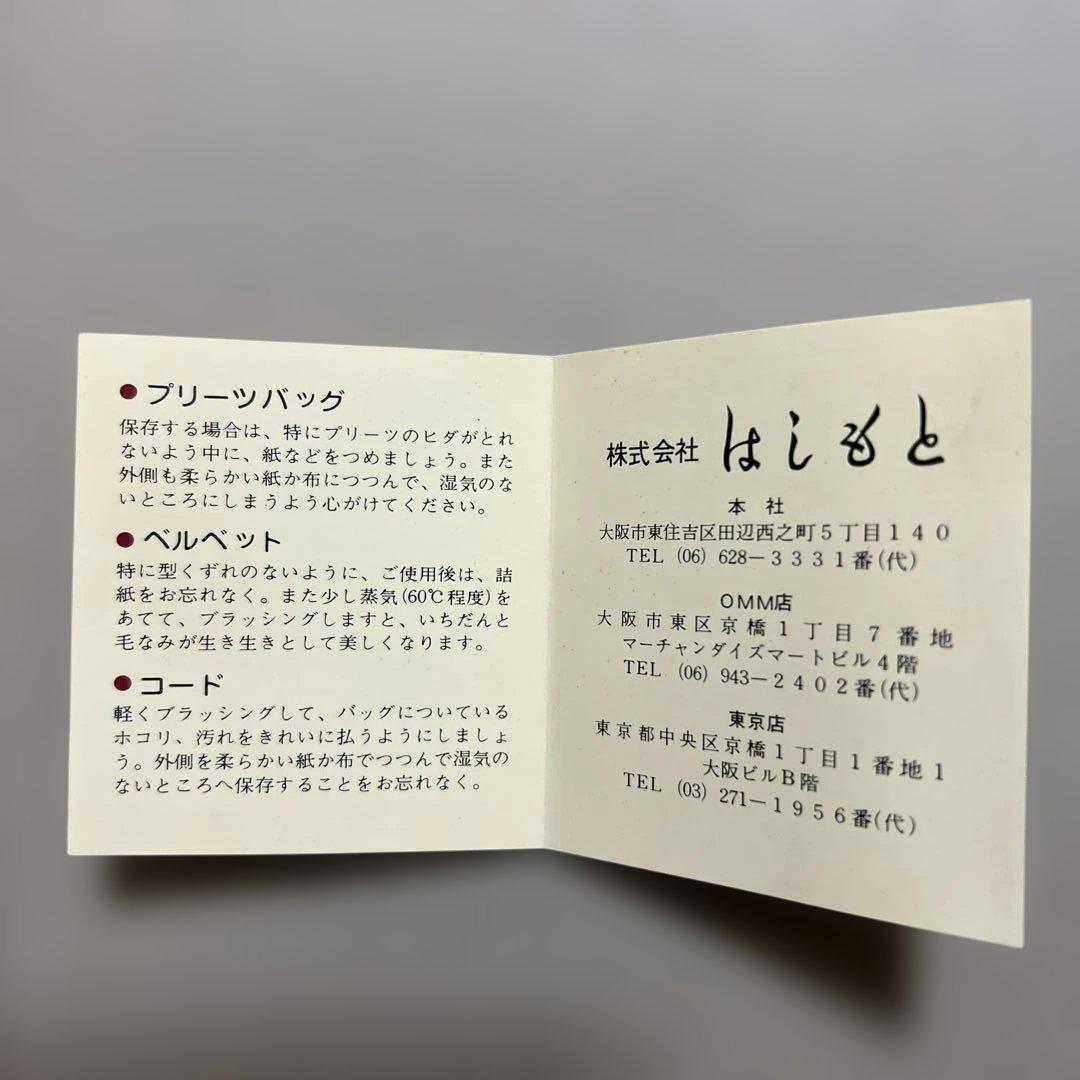 ●プリーツバッグ
保存する場合は、特にプリーツのヒダがとれ
ないよう中に、紙などをつめましょう。また
外側も柔らかい紙か布につつんで、湿気のな
いところにしまうよう心がけてください。
●ベルベット
特に型くずれのないように、ご使用後は、詰
紙をお忘れなく。また少し蒸気(60℃程度)を
あてて、ブラッシングしますと、いちだんと
毛なみが生き生きとして美しくなります。
●コード
軽くブラッシングして、バッグについている
ホコリ、汚れをきれいに払うようにしましょ
う。外側を柔らかい紙か布でつつんで湿気の
ないところへ保存することをお忘れなく。
株式会社 はしもと
本 社
大阪市東住吉区田辺西之町5丁目140
TEL (06) 628－3331番(代)
OMM店
大阪市東区京橋1丁目7番地
マーチャンダイズマートビル4階
TEL (06) 943－2402番(代)
東京店
東京都中央区京橋1丁目1番地1
大阪ビルB階
TEL (03) 271－1956番(代)